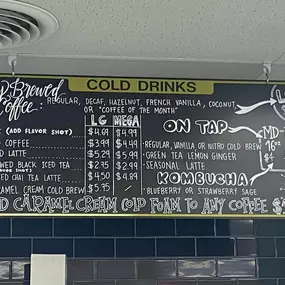 COLD DRINKS
Brewed
Coffee:
REGULAR, DECAF, HAZELNUT, FRENCH VANILLA, COCONUT,
OR "COFFEE OF THE MONTH"
LG MEGA
(ADD FLAVOR SHOT) $4.69 $4.99
COFFEE $3.99 $4.49
LATTE $5.29 $5.99
BLACK ICED TEA $2.75 $2.99
CHAI TEA LATTE $4.50 $4.89
CARAMEL CREAM COLD BREW $5.75 /
ON TAP
MD
16oz
$4
·REGULAR, VANILLA OR NITRO COLD BREW
·GREEN TEA LEMON GINGER
·SEASONAL LATTE
KOMBUCHA
·BLUEBERRY OR STRAWBERRY SAGE
CARAMEL CREAM COLD FOAM TO ANY COFFEE $